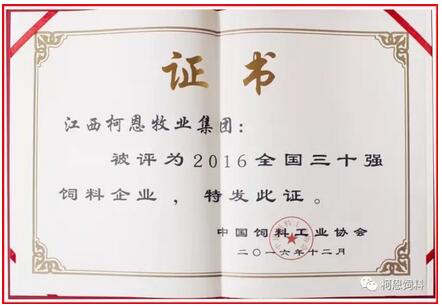 证书
江西柯恩牧业集团：
被评为2016全国三十强
饲料企业，特发此证。
中国饲料工业协会
二〇一六年十二月
柯恩饲料